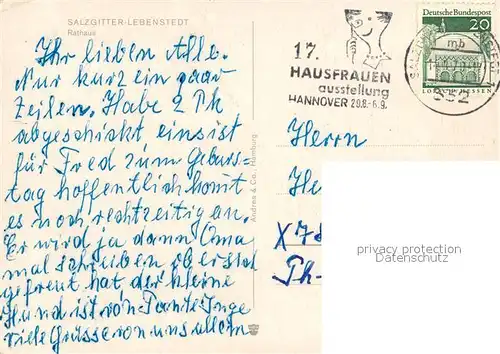 SALZGITTER-LEBENSTEDT
Rathaus
Ihr lieben Alle.
Nur kurz ein paar
Zeilen. Habe 2 Pk
abgeschickt eins ist
für Fred zum Geburs-
tag hoffentlich komt
es noch rechtzeitig an.
Er wird ja dann Oma
mal schreiben ob er sich
gefreut hat der kleine
Hund ist von Tante Inge
viele Grüsse von uns allen
Andres & Co., Hamburg
17.
HAUSFRAUEN
ausstellung
HANNOVER 29.8.-6.9.
Deutsche Bundespost
20
mb
332
Herrn
He
X7
Ph-
privacy protection
Datenschutz